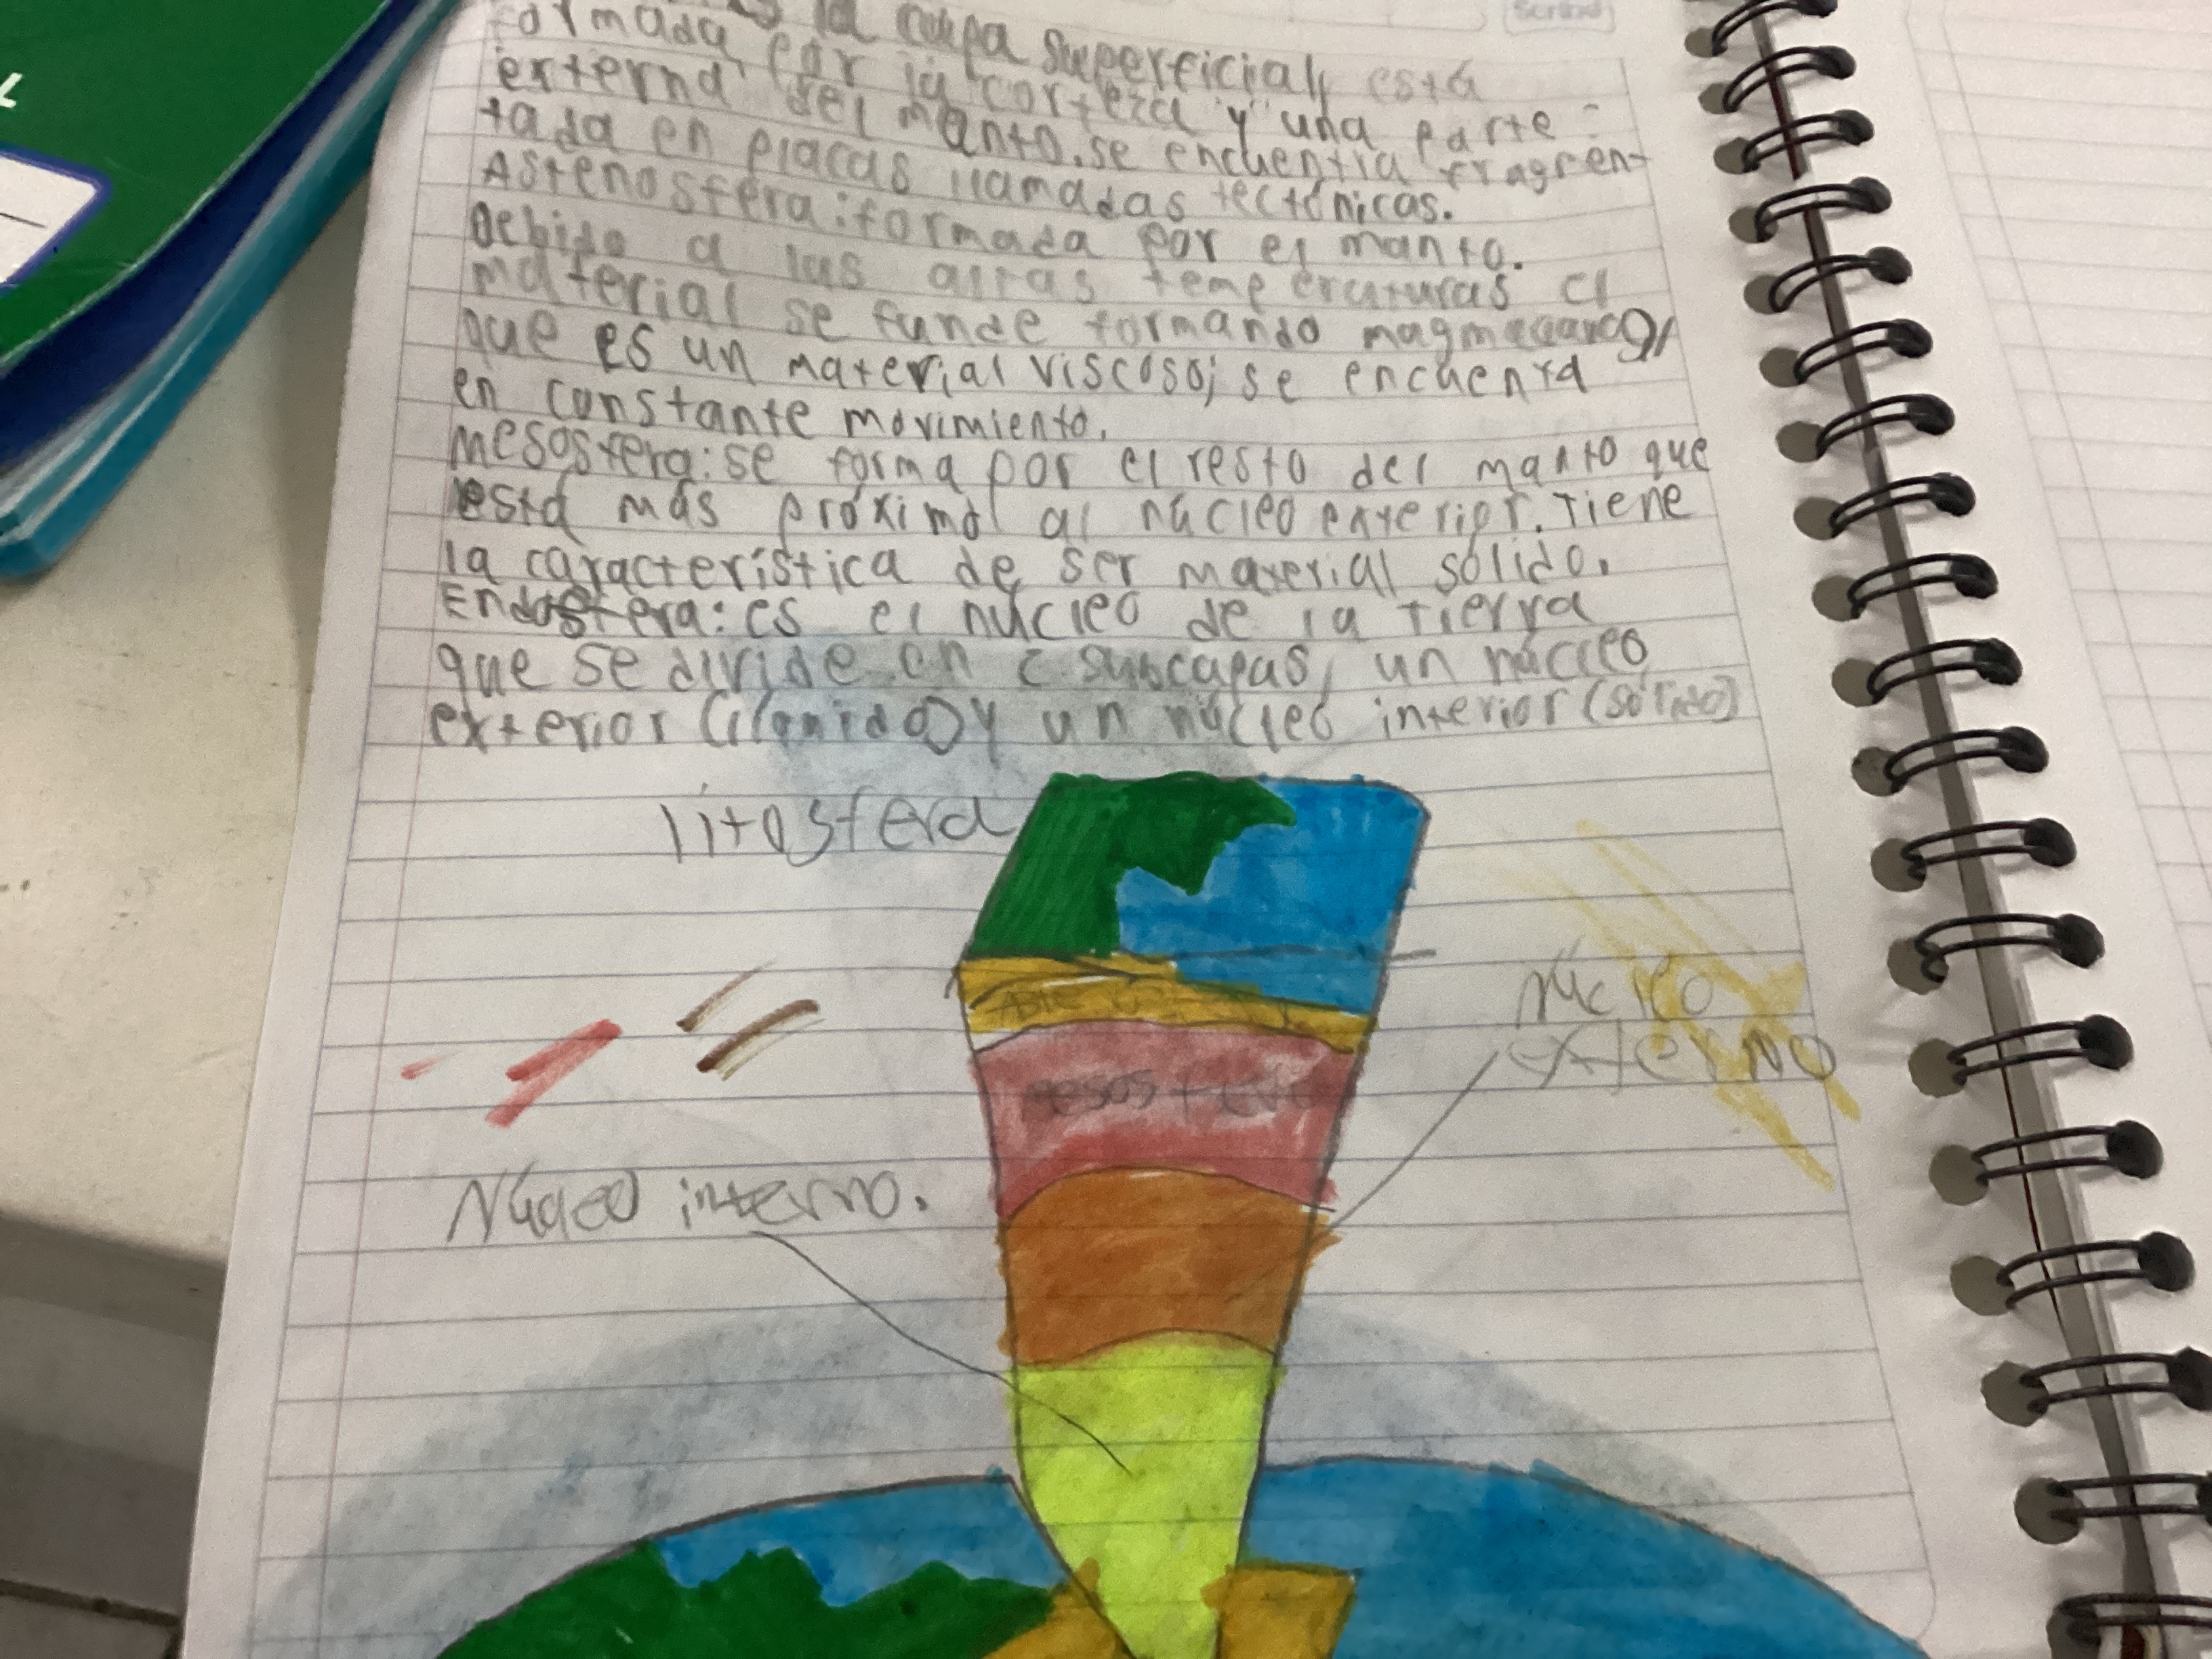 la capa superficial, está
formada por la corteza y una parte
externa del manto. se encuentra fragmen-
tada en placas llamadas tectónicas.
Astenosfera: formada por el manto.
Debido a las altas temperaturas el
material se funde formando magma
que es un material viscoso; se encuentra
en constante movimiento.
Mesosfera: se forma por el resto del manto que
está más próximo al núcleo exterior. Tiene
la característica de ser material sólido.
Endosfera: es el núcleo de la tierra
que se divide en 2 subcapas, un núcleo
exterior (líquido) y un núcleo interior (sólido)
litosfera
Núcleo
externo
mesosfera
Núcleo interno.